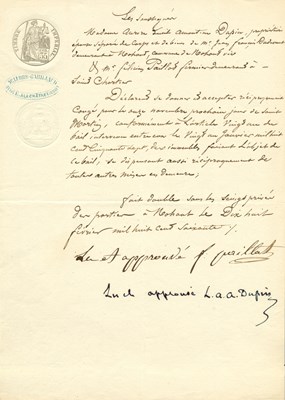 Les soussignés
Madame Aurore Lucile Amantine Dupin, propriétaire
épouse séparée de corps et de biens de Mr Jean François Dudevant
demeurant à Nohant, commune de Nohant Vic
& Mr Paillot fermier demeurant à
Saint Chartier
Déclarent se donner & accepter réciproquement
Congé pour le onze novembre prochain, jour de Saint
Martin, conformément à l'article Vingt un du
bail intervenu entre eux le Vingt un Janvier mil huit
cent Cinquante sept, des immeubles faisant l'objet de
ce bail, se dispensant aussi réciproquement de
toutes autres mises en demeure;
fait double sous les seings privés
des parties à Nohant le Dix huit
février mil huit cent soixante /.
Lu et approuvé f paillot
Lu et approuvé L. a. a. Dupin